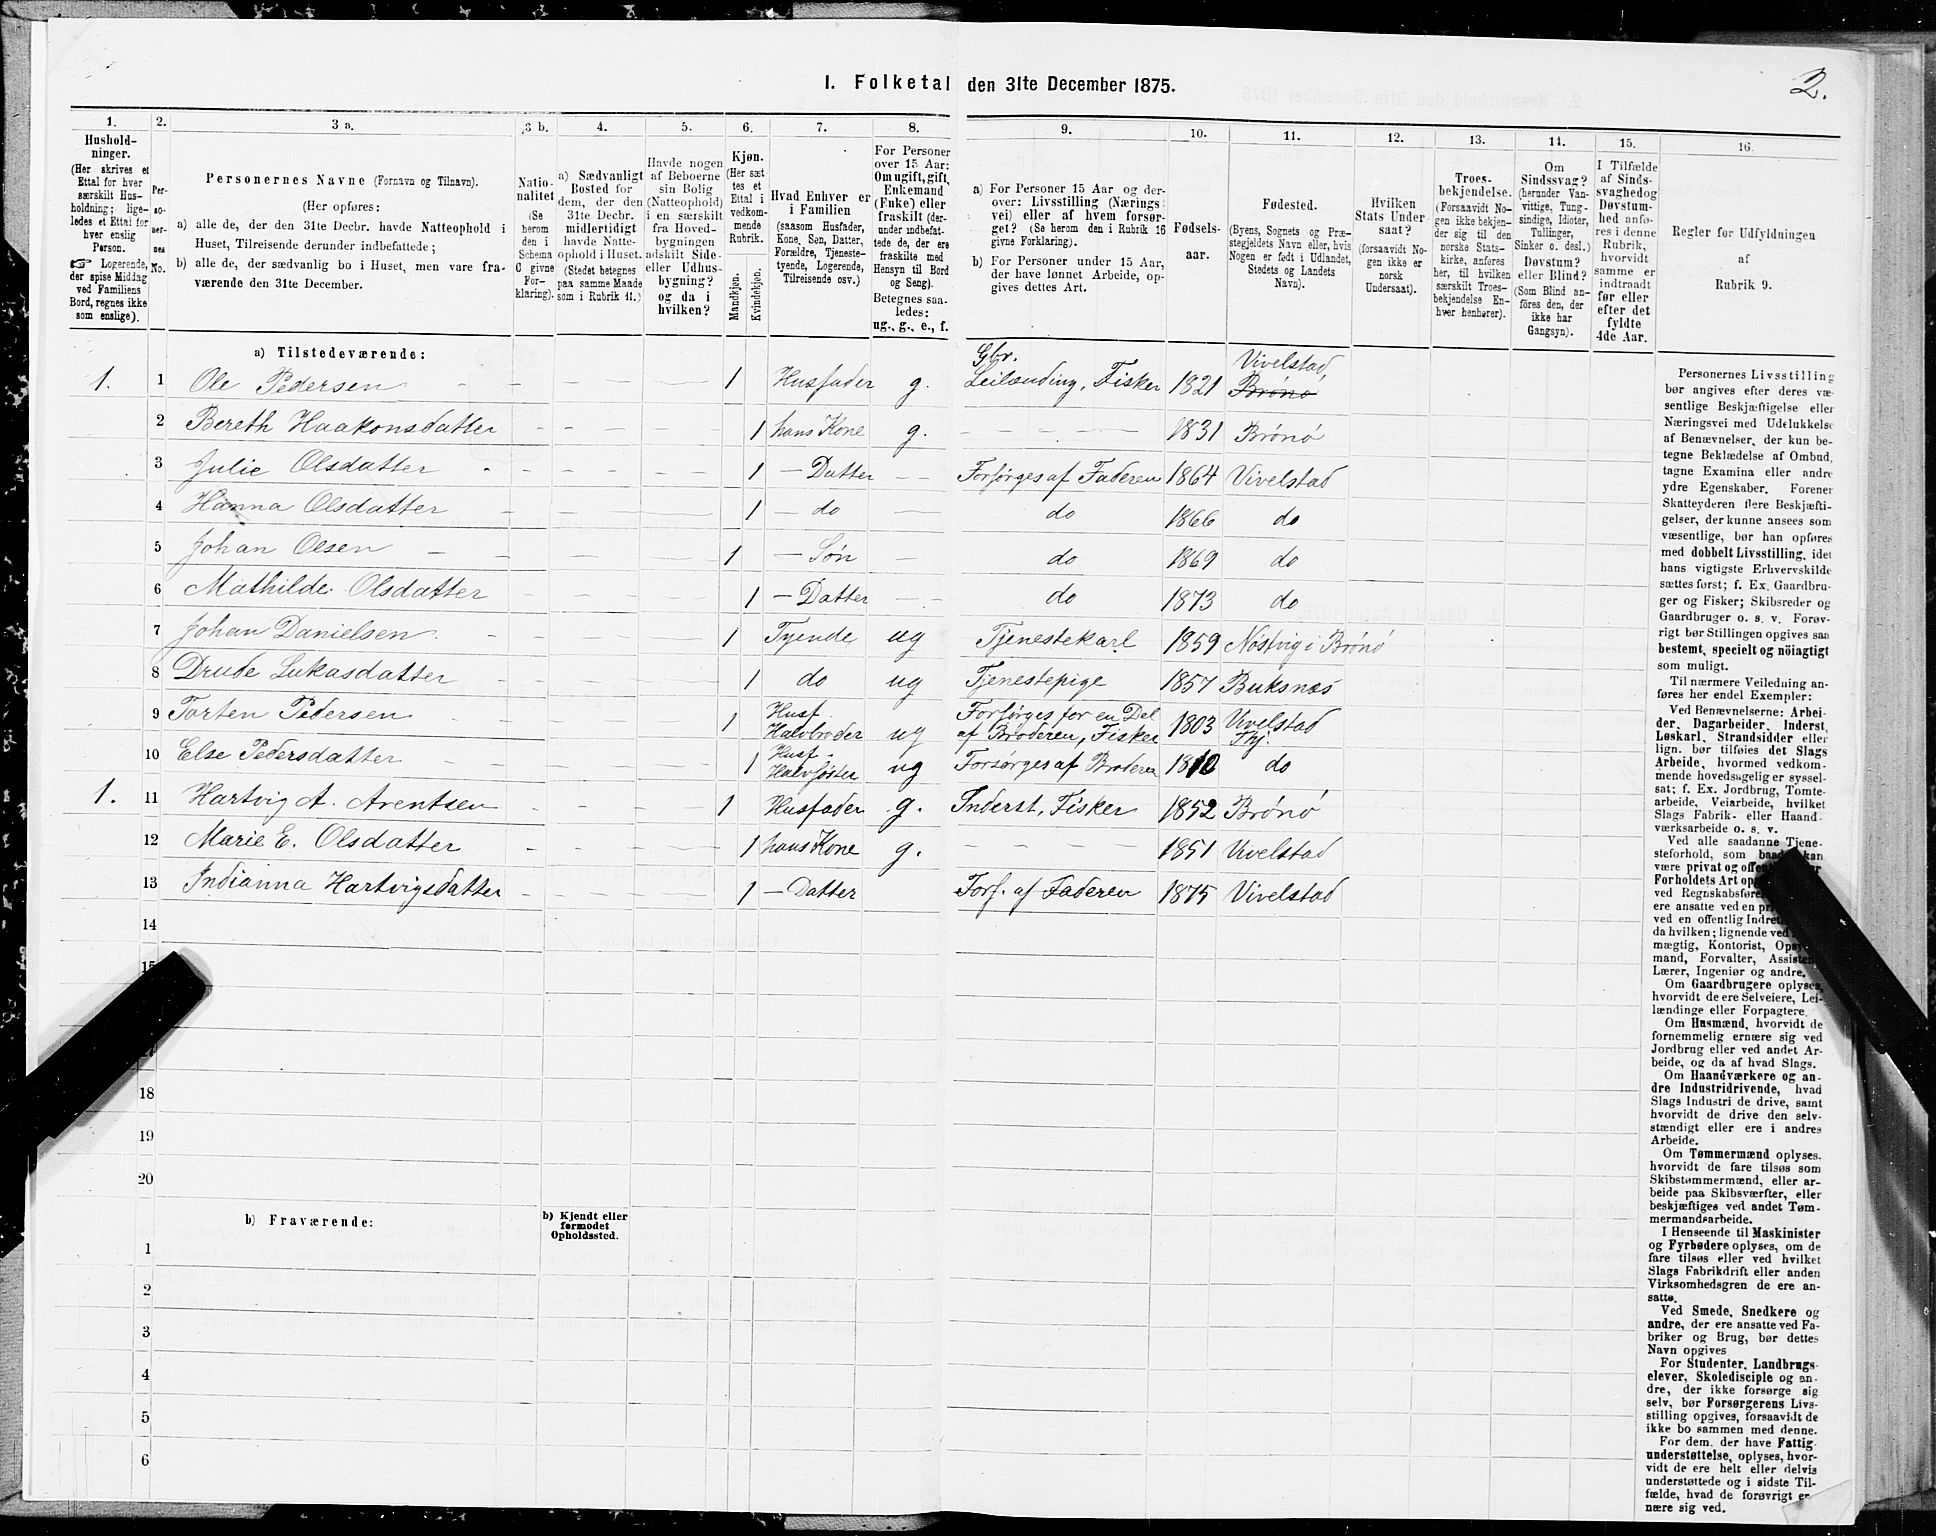 I. Folketal den 31te December 1875.
2.
1.
Hushold-
ninger.
(Her skrives et
Ettal for hver
særskilt Hus-
holdning; lige-
ledes et Ettal for
hver enslig
Person.
☞ Logerende,
der spise Middag
ved Familiens
Bord, regnes ikke
som enslige).
2.
Per-
so-
ner-
nes
No.
3 a.
Personernes Navne (Fornavn og Tilnavn).
(Her opføres:
a) alle de, der den 31te Decbr. havde Natteophold i
Huset, Tilreisende derunder indbefattede;
b) alle de, der sædvanlig bo i Huset, men vare fra-
værende den 31te December.
3 b.
Natio-
nalitet
(Se
herom
den i
Schema
C givne
For-
klaring).
4.
a) Sædvanligt
Bosted for
dem, der den
31te Decbr.
midlertidigt
havde Natte-
ophold i Huset.
(Stedet betegnes
paa samme Maade
som i Rubrik 11.)
5.
Havde nogen
af Beboerne
sin Bolig
(Natteophold)
i en særskilt
fra Hoved-
bygningen
adskilt Side-
eller Udhus-
bygning?
og da i
hvilken?
6.
Kjøn.
(Her sæt-
tes et
Ettal i
vedkom-
mende
Rubrik.
Mandkjøn.
Kvindekjøn.
7.
Hvad Enhver er
i Familien
(saasom Husfader,
Kone, Søn, Datter,
Forældre, Tjeneste-
tyende, Logerende,
Tilreisende osv.)
8.
For Personer
over 15 Aar:
Om ugift, gift,
Enkemand
(Enke) eller
fraskilt (der-
under indbefat-
tede de, der ere
fraskilte med
Hensyn til Bord
og Seng).
Betegnes saa-
ledes:
ug., g., e., f.
9.
a) For Personer 15 Aar og der-
over: Livsstilling (Nærings
vei) eller af hvem forsør-
get? (Se herom den i Rubrik 16
givne Forklaring).
b) For Personer under 15 Aar,
der have lønnet Arbeide, op-
gives dettes Art.
10.
Fødsels-
aar.
11.
Fødested.
(Byens, Sognets og Præ-
stegjeldets Navn eller, hvis
Nogen er født i Udlandet,
Stedets og Landets
Navn).
12.
Hvilken
Stats Under
saat?
(forsaavidt No-
gen ikke er
norsk
Undersaat).
13.
Troes-
bekjendelse.
(Forsaavidt No-
gen ikke bekjen-
der sig til den
norske Stats-
kirke, anføres
her, til hvilken
særskilt Troes-
bekjendelse En-
hver henhører).
14.
Om
Sindssvag?
(herunder Van-
vittige, Tung-
sindige, Idioter,
Tullinger,
Sinker o. desl.)
Døvstum?
eller Blind?
(Som Blind an-
føres den, der
ikke har
Gangsyn).
15.
I Tilfælde
af Sinds-
svaghed og
Døvstum-
hed anfø-
res i denne
Rubrik,
hvorvidt
samme er
indtraadt
før eller
efter det
fyldte
4de Aar.
16.
Regler for Udfyldningen
af
Rubrik 9.
a) Tilstedeværende:
Gbr. Vivelstad
1. 1 Ole Pedersen 1 Husfader g. Leilænding, Fisker 1821 Brønø
2 Bereth Haakonsdatter 1 hans Kone g. 1831 Brønø
3 Julie Olsdatter 1 – Datter Forsørges af Faderen 1864 Vivelstad
4 Hanna Olsdatter 1 – do do 1866 do
5 Johan Olsen 1 – Søn do 1869 do
6 Mathilde Olsdatter 1 – Datter do 1873 do
7 Johan Danielsen 1 Tyende ug Tjenestekarl 1859 Nøstvig i Brønø
8 Drude Lukasdatter 1 do ug Tjenestepige 1857 Buksnæs
9 Torten Pedersen 1 Husf. Halvbroder ug Forsørges for en Del af Broderen, Fisker 1803 Vivelstad
Thj.
10 Else Pedersdatter 1 Husf. Halvsøster ug Forsørges af Broderen 1810 do
1. 11 Hartvig A. Arentsen 1 Husfader g. Inderst, Fisker 1852 Brønø
12 Marie E. Olsdatter 1 hans Kone g. 1851 Vivelstad
13 Indianna Hartvigsdatter 1 – Datter Fors. af Faderen 1875 Vivelstad
14
15
18
19
20
b) Fraværende:
b) Kjendt eller
formodet
Opholdssted.
1
2
3
4
5
6
Personernes Livsstilling
bør angives efter deres væ-
sentlige Beskjæftigelse eller
Næringsvei med Udelukkelse
af Benævnelser, der kun be-
tegne Beklædelse af Ombud,
tagne Examina eller andre
ydre Egenskaber. Forener
Skatteyderen flere Beskjæfti-
gelser, der kunne ansees som
væsentlige, bør han opføres
med dobbelt Livsstilling, idet
hans vigtigste Erhvervskilde
sættes først; f. Ex. Gaardbru-
ger og Fisker; Skibsreder og
Gaardbruger o. s. v. Forøv-
rigt bør Stillingen opgives saa
bestemt, specielt og nöiagtigt
som muligt.
Til nærmere Veiledning an-
føres her endel Exempler:
Ved Benævnelserne: Arbei-
der, Dagarbeider, Inderst,
Løskarl, Strandsidder eller
lign. bør tilføies det Slags
Arbeide, hvormed vedkom-
mende hovedsagelig er syssel-
sat; f. Ex. Jordbrug, Tomte-
arbeide, Veiarbeide, hvilket
Slags Fabrik- eller Haand
værksarbeide o. s. v.
Ved alle saadanne Tjene-
steforhold, som baade kan
være privat og offen
Forholdets Art op
ved Regnskabsføre
ere ansatte ved en pr
ved en offentlig Indret
da hvilken; lignende ved
mægtig, Kontorist, Opsy
mand, Forvalter, Assistent
Lærer, Ingeniør og andre.
Om Gaardbrugere oplyses,
hvorvidt de ere Selveiere, Lei-
lændinge eller Forpagtere.
Om Husmænd, hvorvidt de
fornemmelig ernære sig ved
Jordbrug eller ved andet Ar-
beide, og da af hvad Slags.
Om Haandværkere og an-
dre Industridrivende, hvad
Slags Industri de drive, samt
hvorvidt de drive den selv-
stændigt eller ere i andres
Arbeide.
Om Tømmermænd oplyses,
hvorvidt de fare tilsøs som
Skibstømmermænd, eller ar-
beide paa Skibsværfter, eller
beskjæftiges ved andet Tøm-
mermandsarbeide.
I Henseende til Maskinister
og Fyrbødere oplyses, om de
fare tilsøs eller ved hvilket
Slags Fabrikdrift eller anden
Virksomhedsgren de ere an-
satte.
Ved Smede, Snedkere og
andre, der ere ansatte ved Fa-
briker og Brug, bør dettes
Navn opgives
For Studenter, Landbrugs-
elever, Skoledisciple og an-
dre, der ikke forsørge sig
selv, bør Forsørgerens Livs-
stilling opgives, forsaavidt de
ikke bo sammen med denne.
For dem, der have Fattig-
understøttelse, oplyses, hvor-
vidt de ere helt eller delvis
understøttede og i sidste Til-
fælde, hvad de forøvrigt er-
nære sig ved.